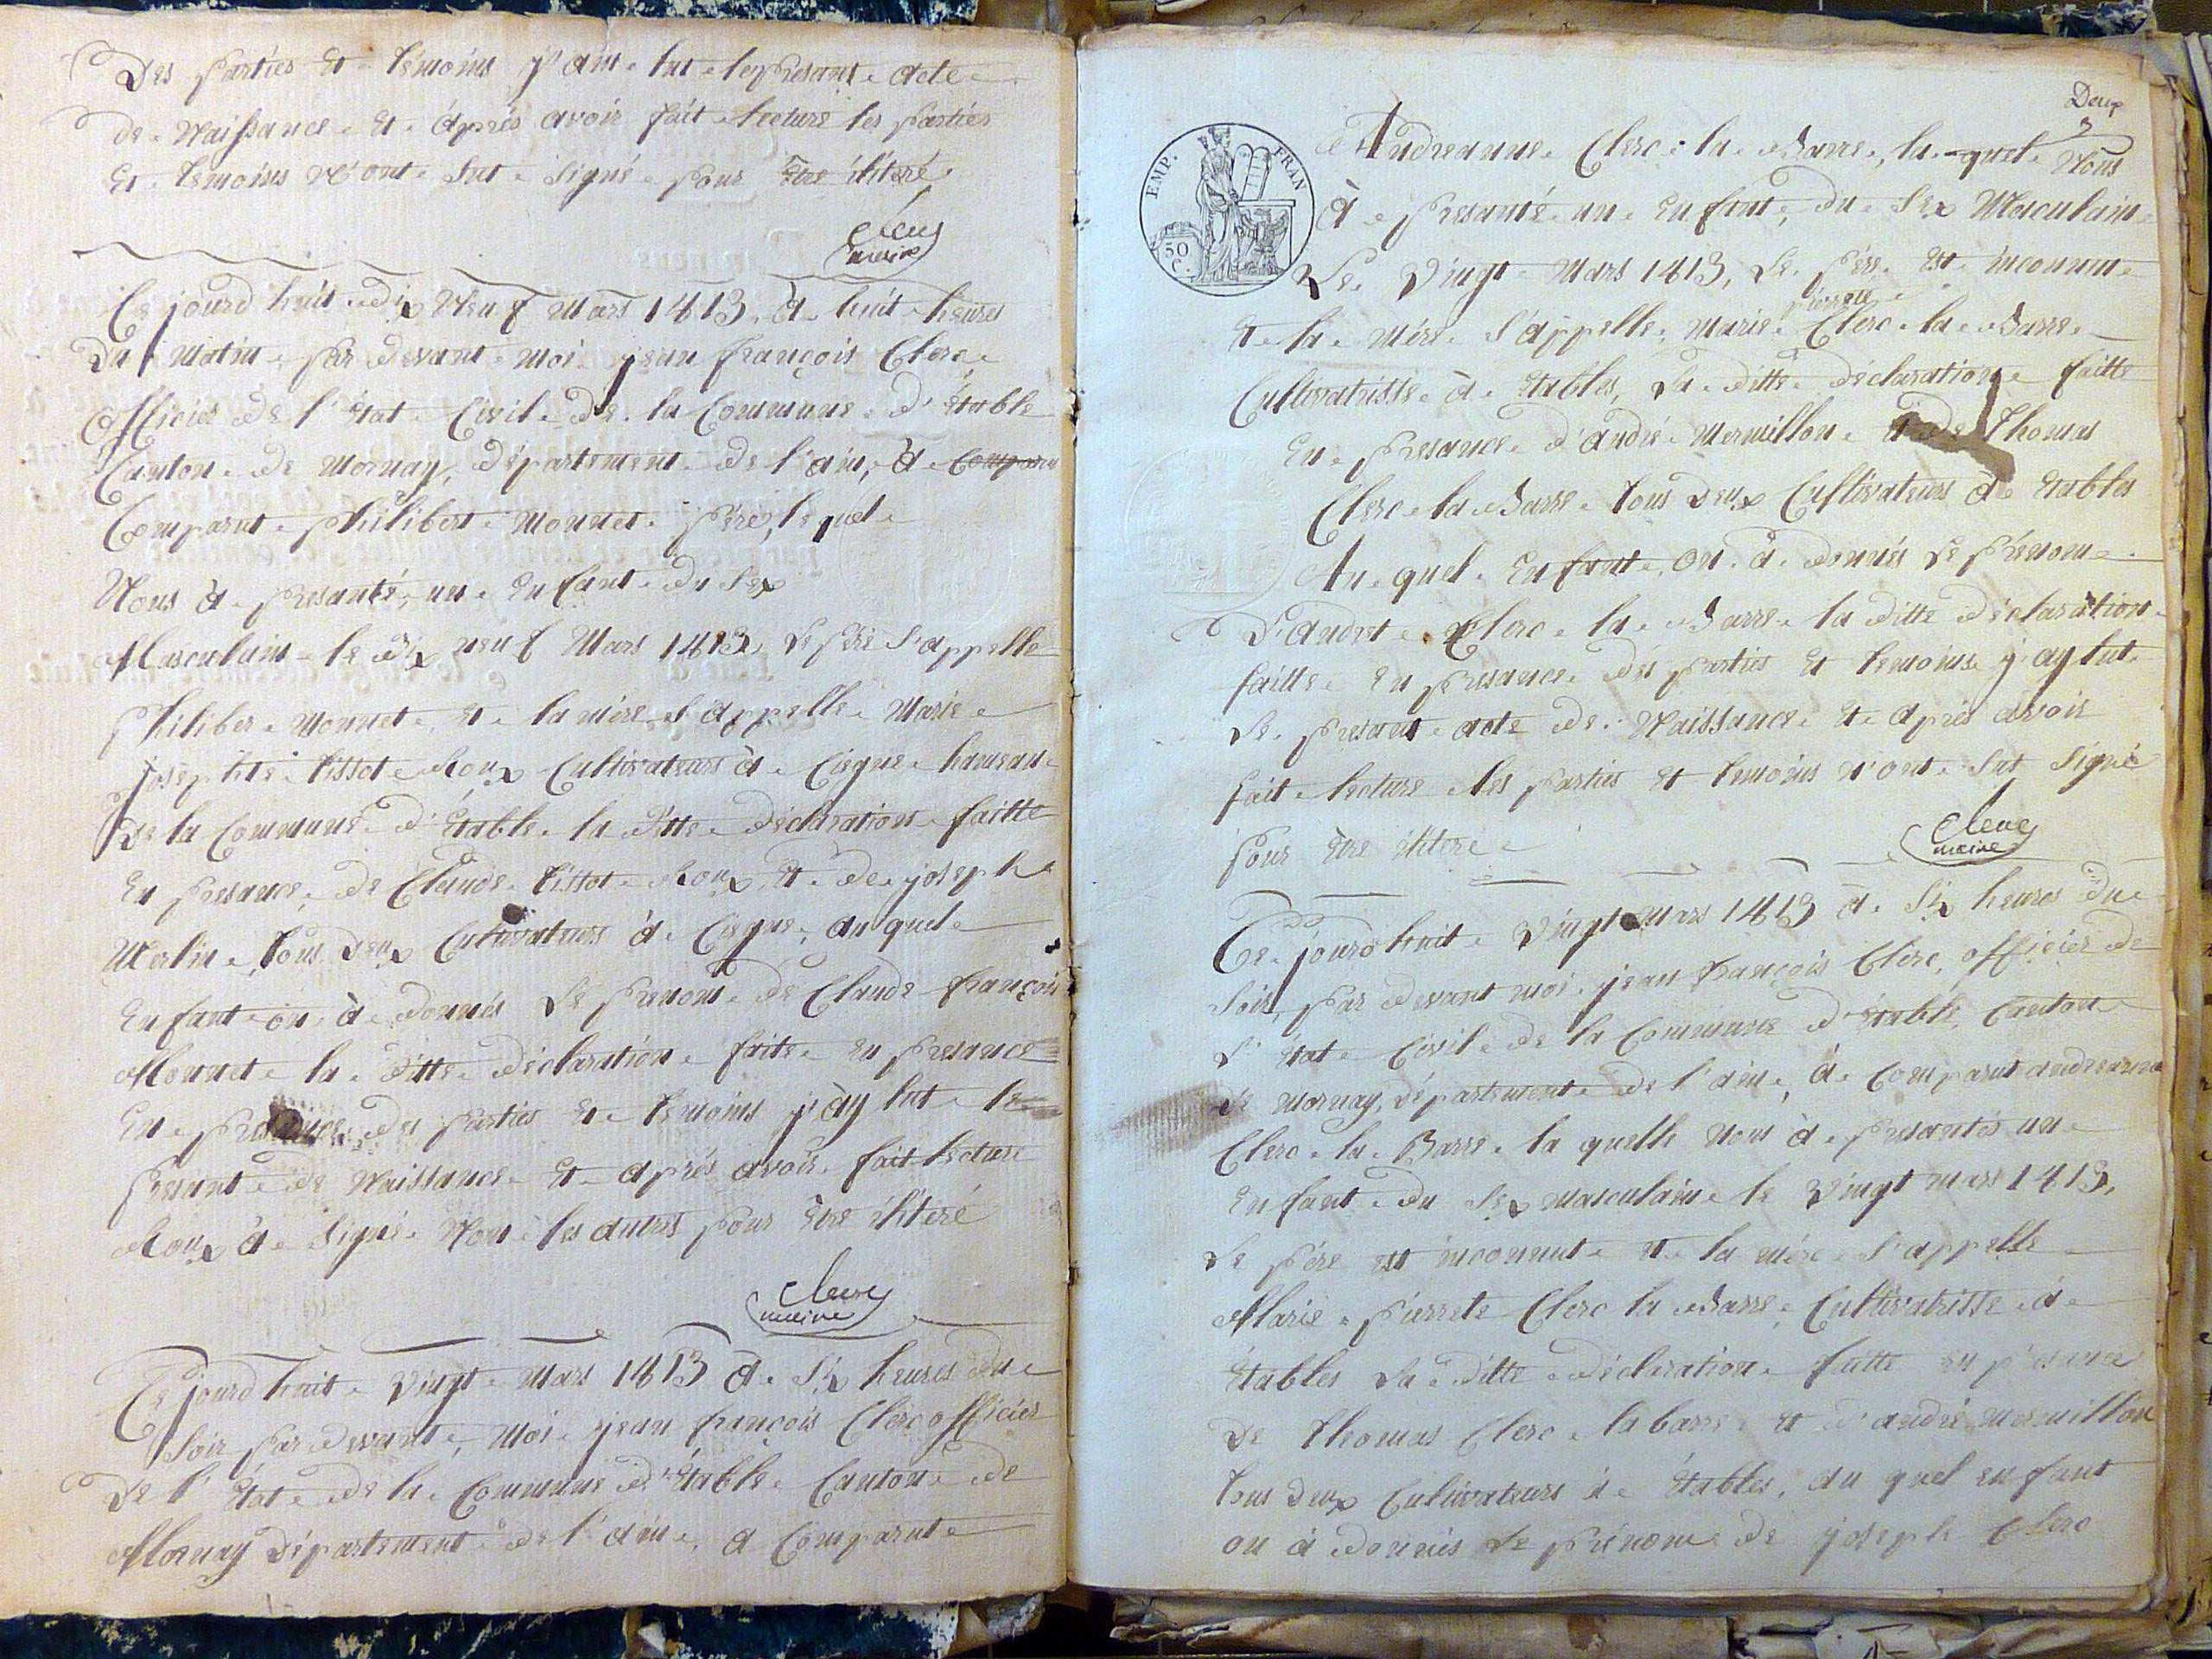 Des parties et témoins j'ait lut le presant acte
de Naissance et après avoir fait lecture les parties
et temoins n'ont sut signé pour être iliteré
Clerc
maire
Ce jourd'huit dix Neuf Mars 1813, à huit heures
Du matin par devant moi jean françois Clerc
Officier de l'état Civil de la Commune d'étable
Canton de mornay, département de l'ain, à Comparu
Comparut philibert Monnet père, le quel
Nous à presanté, un enfant du sex
Masculain le dix neuf Mars 1813, le père s'appelle
philiber Monnet et la mère s'appelle Marie
josephte tissot Roux Cultivateurs à Ciegne hameau
de la Commune d'étable la ditte declaration faitte
en presance, de Claude tissot Roux et de joseph
Merlin, tous deux Cultivateurs à Ciegne, auquel
enfant on à donnés le prenom de Claude françois
Monnet la ditte declaration faite en presance
en presance des parties et temoins j'ay lut le
presant de Naissance et après avoir fait lecture
Roux à signé Non les autres pour être iliteré
Clerc
maire
Ce jourd'huit vingt Mars 1813 à six heures du
soir par devant, Moi jean françois Clerc officier
de l'état de la Commune d'étable Canton de
Mornay département de l'ain, a Comparut
Deux
EMP. FRAN
50
C.
Andreanne Clerc la Barre, la quel Nous
à presanté un enfant, du sex Masculain
Le vingt Mars 1813, le père est inconnut
pierrete
et la mère s'appelle, marie Clerc la Barre
Cultivatrisse à étables, la ditte déclaration faitte
en presance d'andré Mermillon et de Thomas
Clerc la Barre tous deux Cultivateurs à étables
Au quel enfant, on à donnés le prénom
D'andret Clerc la Barre la ditte déclaration
faitte en presance des parties et temoins j'ay lut
le presant acte de Naissance et après avoir
fait lecture les parties et temoins n'ont sut signé
pour être iliteré
Clerc
maire
Ce jourd'huit vingt Mars 1813 à six heures du
soir, par devant moi jean françois Clerc, officier de
l'état Civil de la Commune d'étable, Canton
de mornay, département de l'ain, à Comparut andreanne
Clerc la Barre la quelle nous à presantés un
enfant du sex masculain le vingt mars 1813,
le père est inconnut et la mère s'appelle
Marie pierrete Clerc la Barre Cultivatrisse à
étables la ditte déclaration faitte en présance
de thomas Clerc la barre et d'andré mermillon
tous deux Cultivateurs à étables, au quel enfant
on à donnés le prénom de joseph Clerc